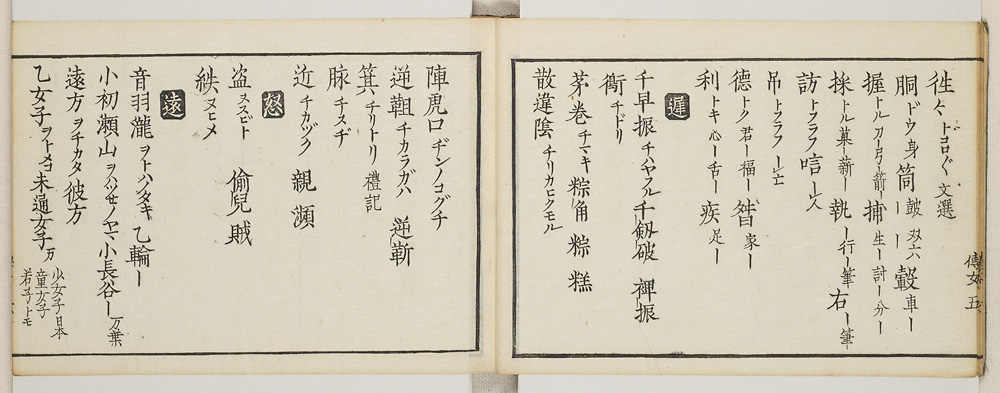 徃〻 トコロ〲 文選
胴 ドウ 身 筒ー 皷ー 双六 轂 車ー
握 トル 刀ー弓ー箭ー 捕 生ー討ー分ー
採 トル 菓ー薪ー 執ー 行ー筆 右ー 筆
訪 トフラフ 唁ー 人
吊 トフラフ 亡ー
徳 トク 君ー福ー 㫪 家ー
利 トキ 心ー舌ー 疾 足ー
遲
千早振 チハヤフル 千釼破 神振
鵆 チドリ
茅巻 チマキ 粽 角粽 糕
散違陰 チリカヒクモル
傳女 五
陣虎口 ヂンノコグチ
逆靻 チカラガハ 逆靳
箕 チリトリ 禮記
脉 チスヂ
近 チカヅク 親 瀕
怒
盗 ヌスビト 偷兒 賊
紩 ヌヒメ
遠
音羽瀧 ヲトハノタキ 乙輪ー
小初瀬山 ヲハツセノヤマ 小長谷ー 万葉
遠方 ヲチカタ 彼方
乙女子 ヲトメコ 未通女子 万 少女子 日本 童女子 若子トモ